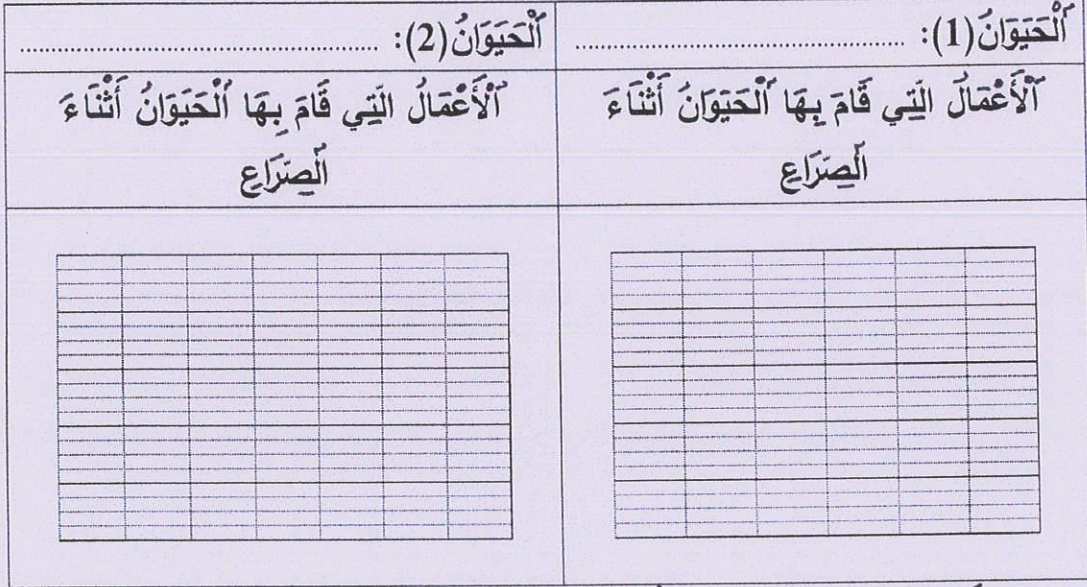 اَلْحَيَوَانُ(1): ........................................
اَلْحَيَوَانُ(2): ........................................
اَلْأَعْمَالُ الَّتِي قَامَ بِهَا اَلْحَيَوَانُ أَثْنَاءَ
اَلصِّرَاعِ
اَلْأَعْمَالُ الَّتِي قَامَ بِهَا اَلْحَيَوَانُ أَثْنَاءَ
اَلصِّرَاعِ